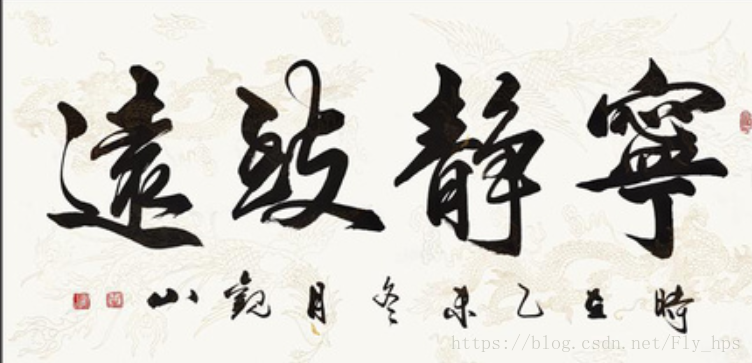 寧靜致遠
時在乙未冬月觀山
https://blog.csdn.net/Fly_hps